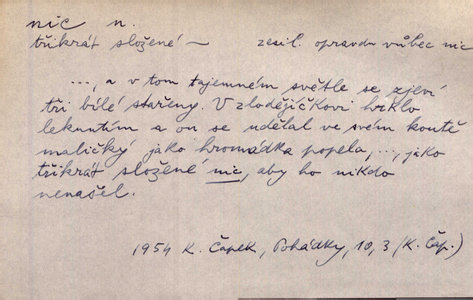 nic n.
třikrát složené ~ zesil. opravdu vůbec nic
..., a v tom tajemném světle se zjeví
tři bílé stařeny. V zlodějíčkovi hrklo
leknutím a on se udělal ve svém koutě
maličký jako hromádka popela, ..., jako
třikrát složené nic, aby ho nikdo
nenašel.
1954 K. Čapek, Pohádky, 10, 3 (K. Čap.)